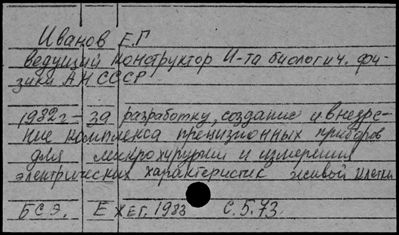 Иванов Е.Г
ведущий конструктор И-та биологич. фи-
зики АН СССР
1982г - за разработку, создание и внедре-
ние комплекса прецизионных приборов
для микрохирургии и измерения
электрических характеристик живой клетки
БСЭ. Ежег. 1983 С. 573.